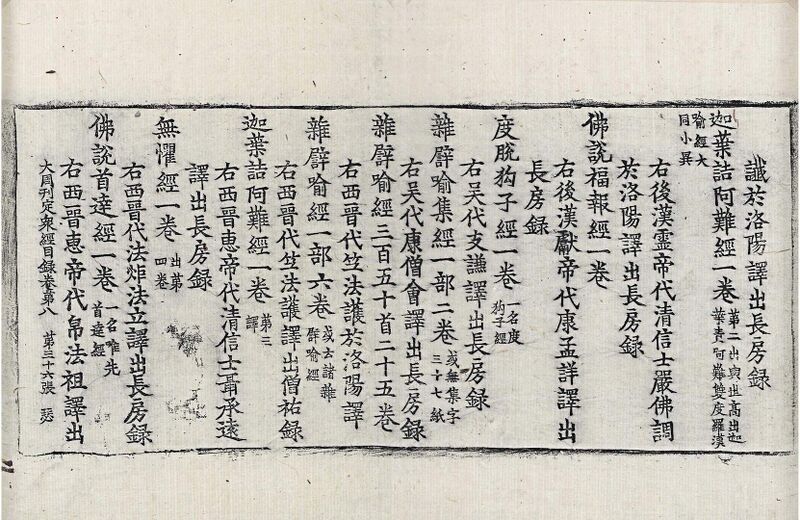 讖於洛陽譯出長房録
迦葉詰阿難經一卷 第二出與世高出迦葉責阿難雙度羅漢
喻經大同小異
右後漢靈帝代清信士嚴佛調
於洛陽譯出長房録
佛說福報經一卷
右後漢獻帝代康孟詳譯出
長房録
度脫狗子經一卷 一名度狗子經
右吴代支謙譯出長房録
雜譬喻集經一部二卷 或無集字三十七紙
右吴代康僧會譯出長房録
雜譬喻經三百五十首二十五卷
右西晉代竺法護於洛陽譯
雜譬喻經一部六卷 或云諸雜譬喻經
右西晉代竺法護譯出僧祐録
迦葉詰阿難經一卷 第三譯
右西晉惠帝代清信士聶承遠
譯出長房録
無懼經一卷 出第四卷
右西晉代法炬法立譯出長房録
佛說首達經一卷 一名唯先首達經
右西晉惠帝代帛法祖譯出
大周刊定衆經目録卷第八 第三十六張 瑟